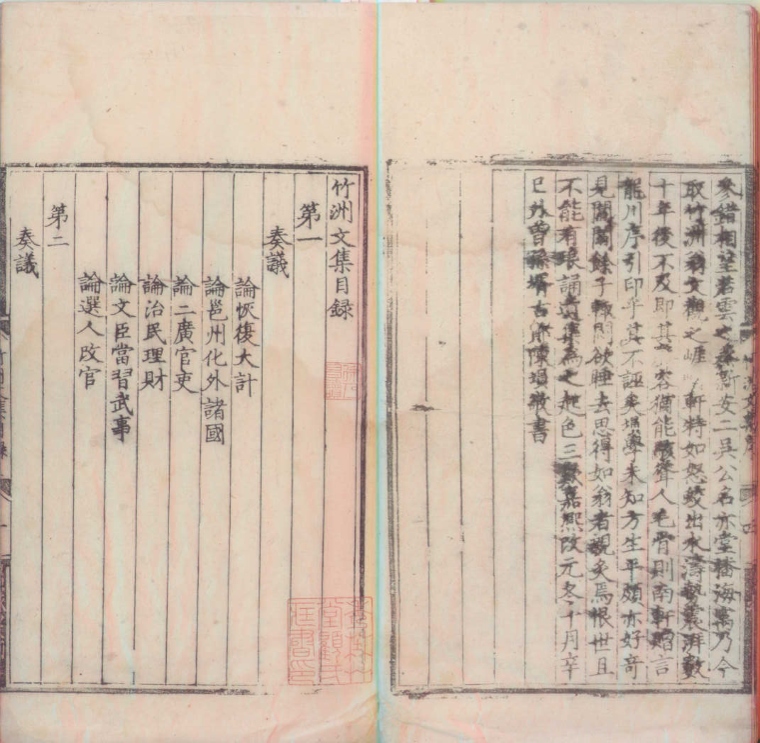 參錯相望若雲之 二吳公名亦堂播海寓乃今
取竹洲翁文觀之崖 軒特如怒蛟出水濤 數
十年後不及即其 容猶能 聳人毛骨則南軒贈言
龍川序引印乎其不誣矣塤學未知方生平頗亦好奇
見闒闒餘子輒悶欲睡去思得如翁者親炙焉恨世且
不能有張誦遺集為之起色三歎嘉熙改元冬十月辛
巳外曾孫壻古 陳塤敬書
竹洲文集目録
第一
奏議
論恢復大計
論邕州化外諸國
論二廣官吏
論治民理財
論文臣當習武事
論選人改官
第二
奏議